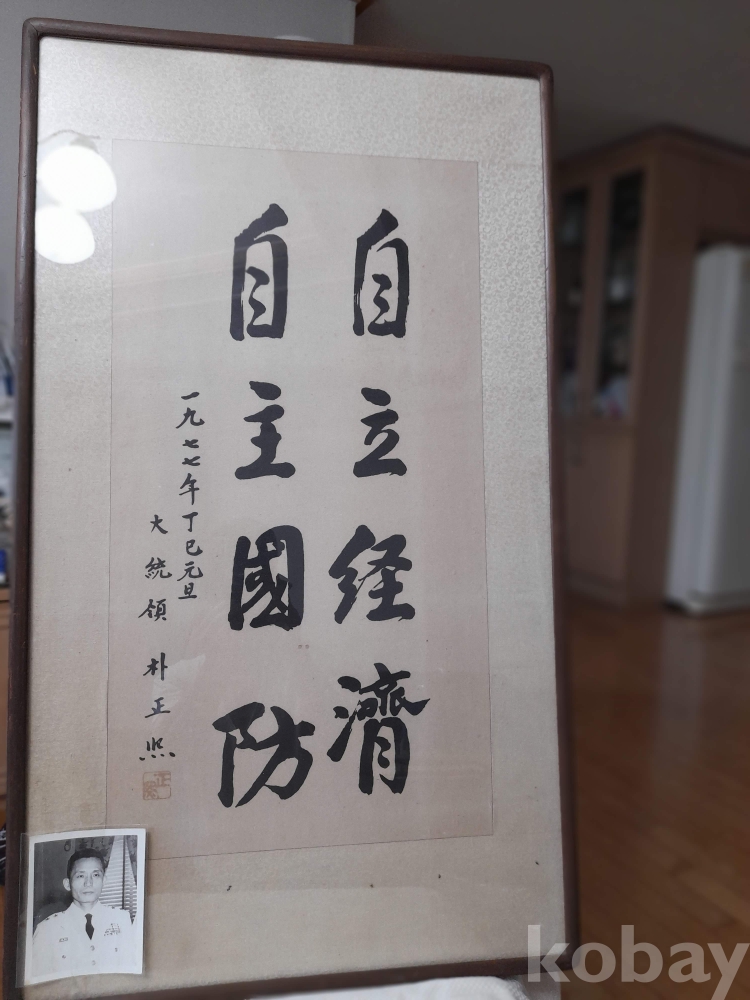 自立経濟
自主國防
一九七七年丁巳元旦
大統領 朴正熙
kobay